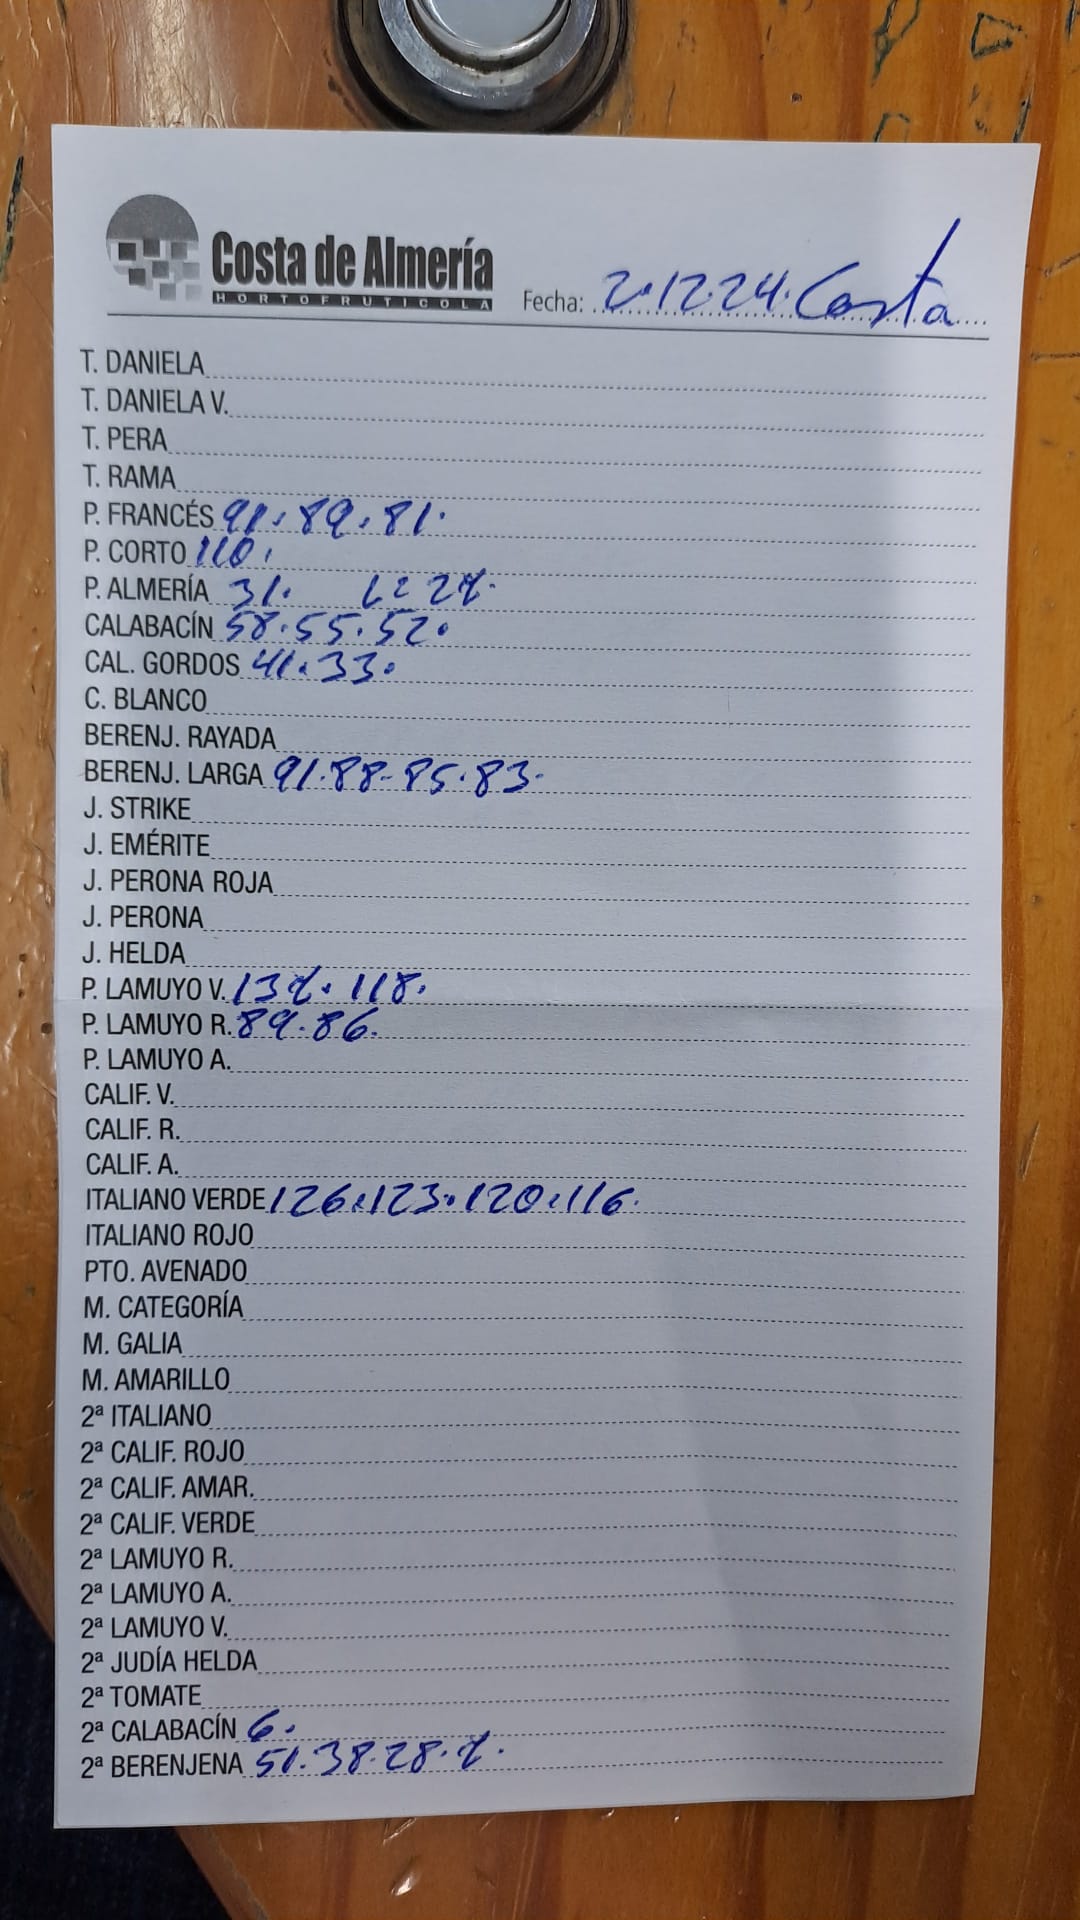 Costa de Almería
HORTOFRUTICOLA
Fecha: 2.12.24. Costa
T. DANIELA
T. DANIELA V.
T. PERA
T. RAMA
P. FRANCÉS 91. 89. 81.
P. CORTO 110.
P. ALMERÍA 31. L= 27.
CALABACÍN 58. 55. 52.
CAL. GORDOS 41. 33.
C. BLANCO
BERENJ. RAYADA
BERENJ. LARGA 91. 88- 85. 83.
J. STRIKE
J. EMÉRITE
J. PERONA ROJA
J. PERONA
J. HELDA
P. LAMUYO V. 137. 118.
P. LAMUYO R. 89. 86.
P. LAMUYO A.
CALIF. V.
CALIF. R.
CALIF. A.
ITALIANO VERDE 126. 123. 120. 116.
ITALIANO ROJO
PTO. AVENADO
M. CATEGORÍA
M. GALIA
M. AMARILLO
2ª ITALIANO
2ª CALIF. ROJO
2ª CALIF. AMAR.
2ª CALIF. VERDE
2ª LAMUYO R.
2ª LAMUYO A.
2ª LAMUYO V.
2ª JUDÍA HELDA
2ª TOMATE
2ª CALABACÍN 6.
2ª BERENJENA 51. 38. 28. 7.